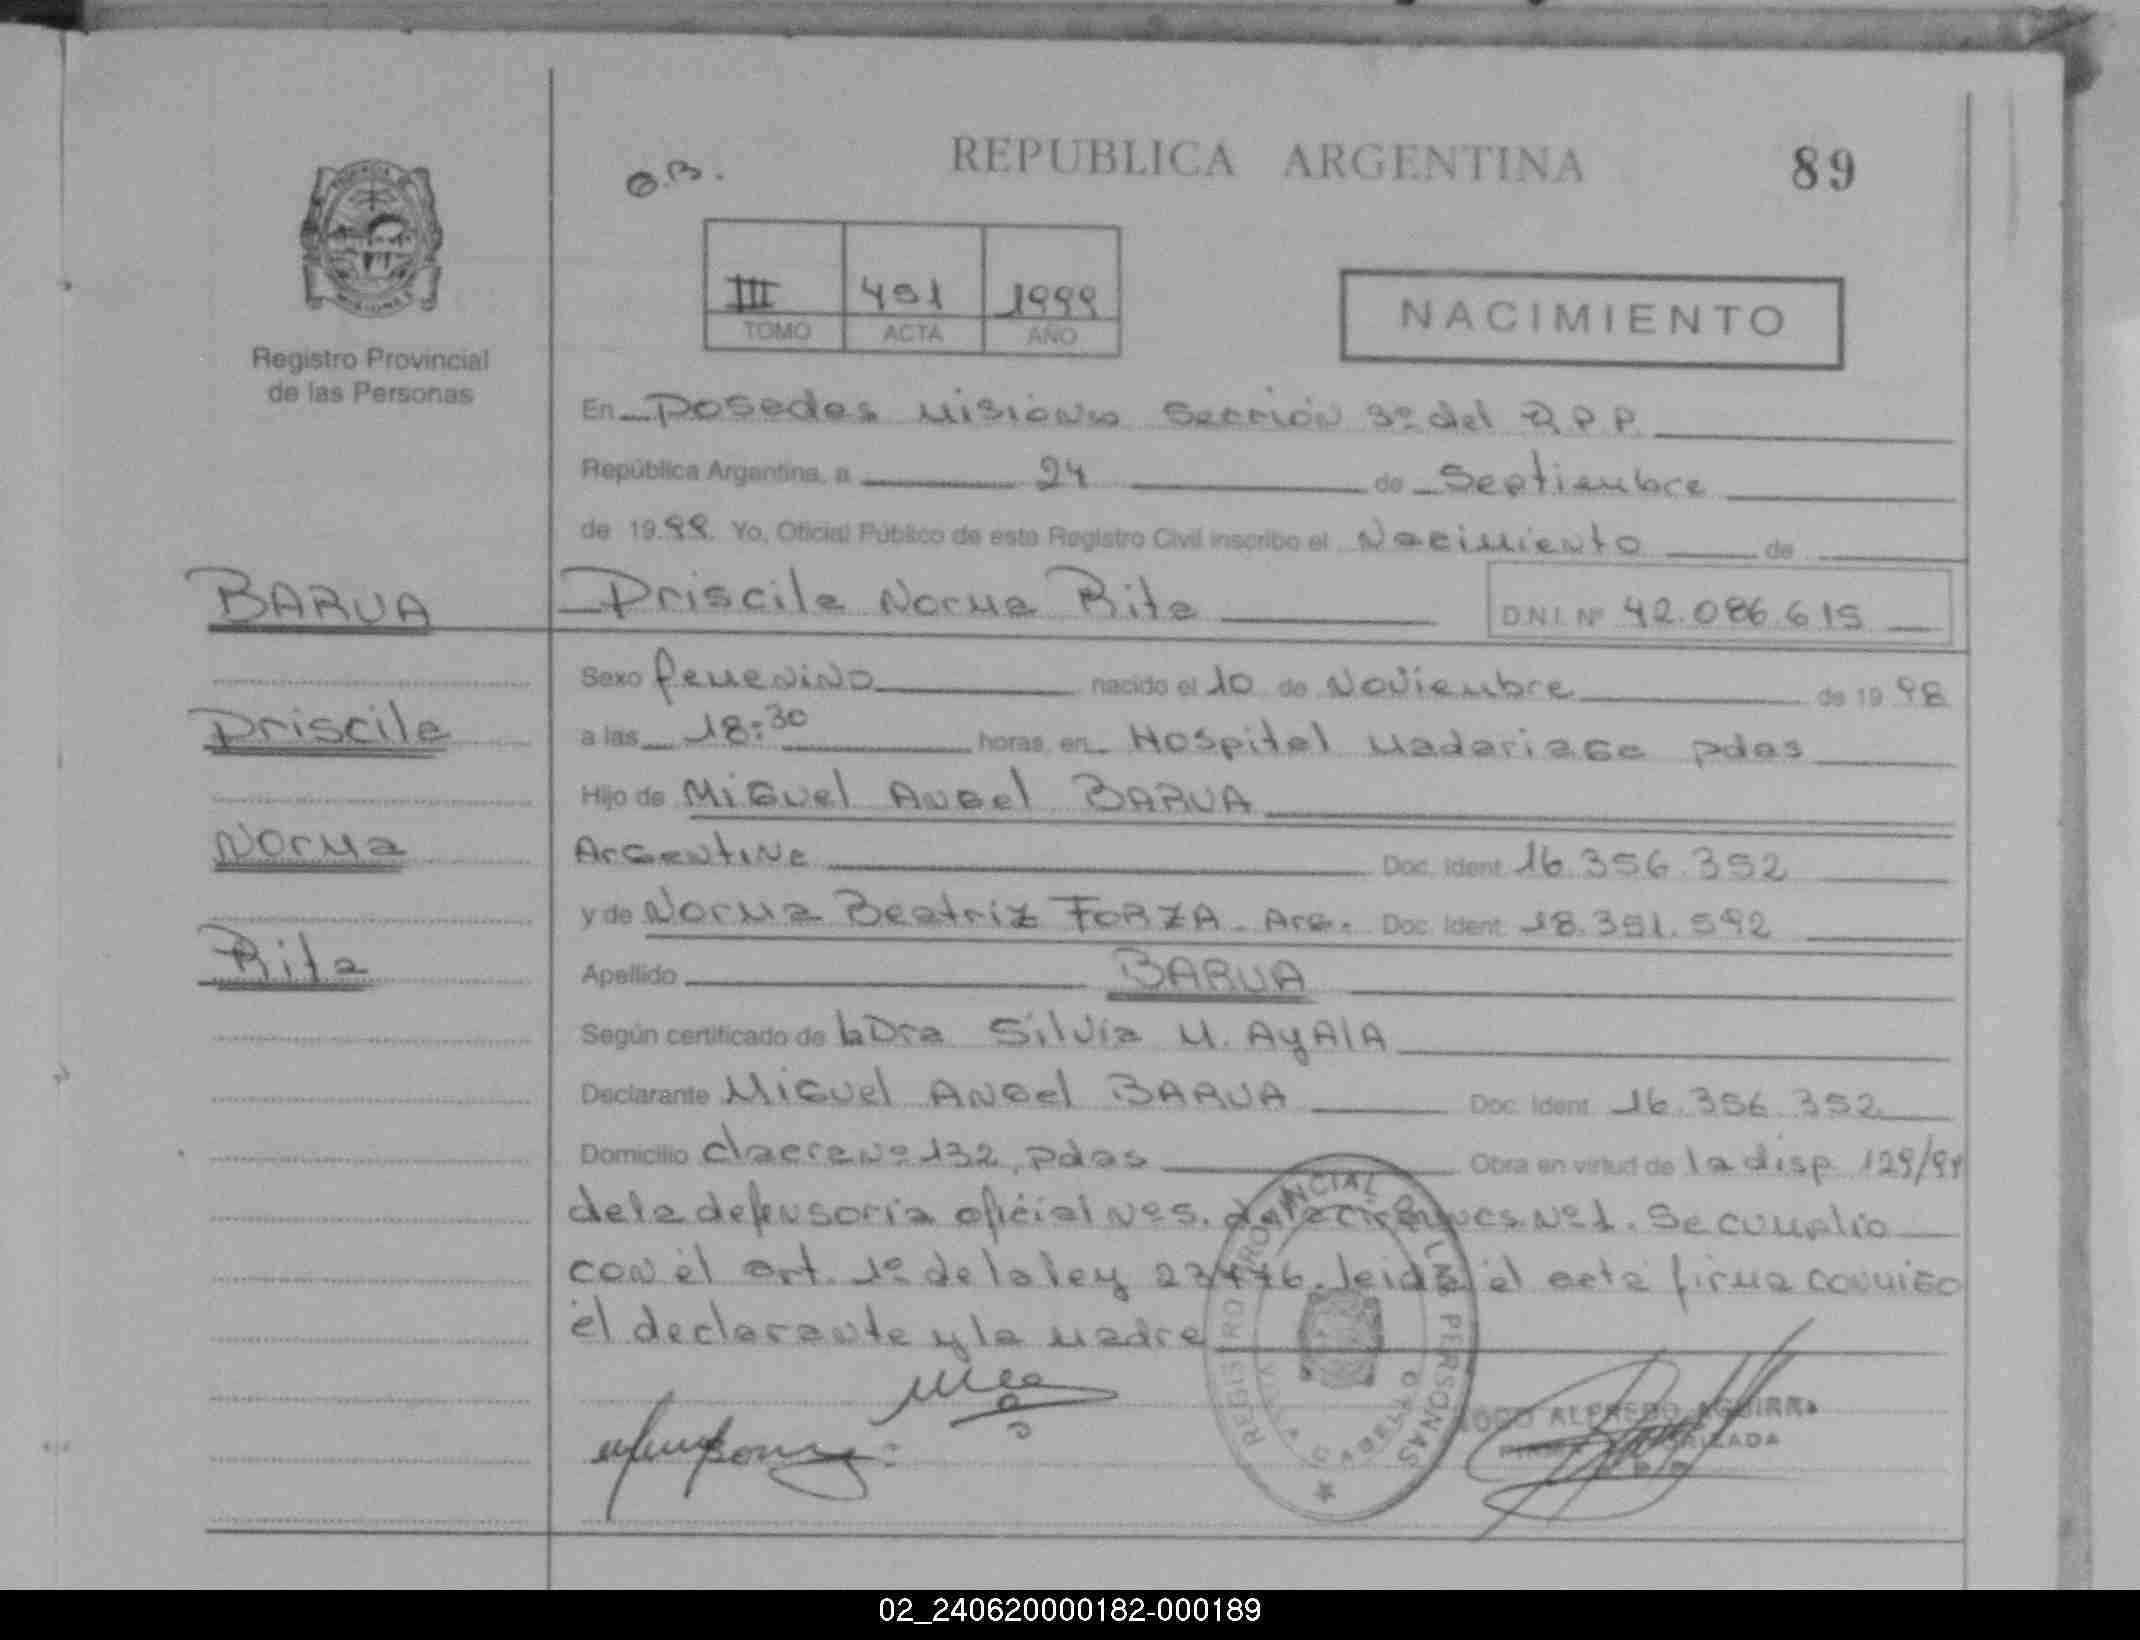 REPUBLICA ARGENTINA
89
III 491 1999
TOMO ACTA AÑO
NACIMIENTO
Registro Provincial
de las Personas
En Posadas Misiones Sección 3º del R.P.P.
República Argentina, a 24 de Septiembre
de 1999. Yo, Oficial Público de este Registro Civil inscribo el Nacimiento de
BARUA Priscila Norma Rita D.N.I. Nº 42.086.615
Sexo femenino nacido el 10 de Noviembre de 1998
Priscila a las 18:30 horas, en Hospital Madariaga pdas
Hijo de Miguel Angel BARUA
Norma Argentina Doc. Ident. 16.356.352
y de Norma Beatriz FORZA. Arg. Doc. Ident. 18.391.592
Rita Apellido BARUA
Según certificado de la Dra Silvia M. AyAlA
Declarante Miguel Angel BARUA Doc. Ident. 16.356.352
Domicilio chacra Nº 132, pdas Obra en virtud de la disp. 129/99
de la defensoria oficial Nº 5. de Nº 1. Se cumplio
con el art. 1º de la ley 23776. leida el acta firma conmigo
el declarante y la madre
REGISTRO PROVINCIAL DE LAS PERSONAS
ALFREDO AGUIRRE
02_240620000182-000189